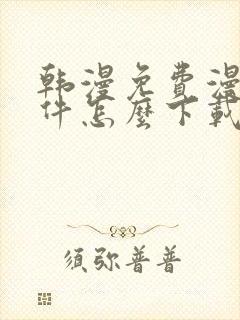 韩漫免費漫
件怎麼下載
須弥普普